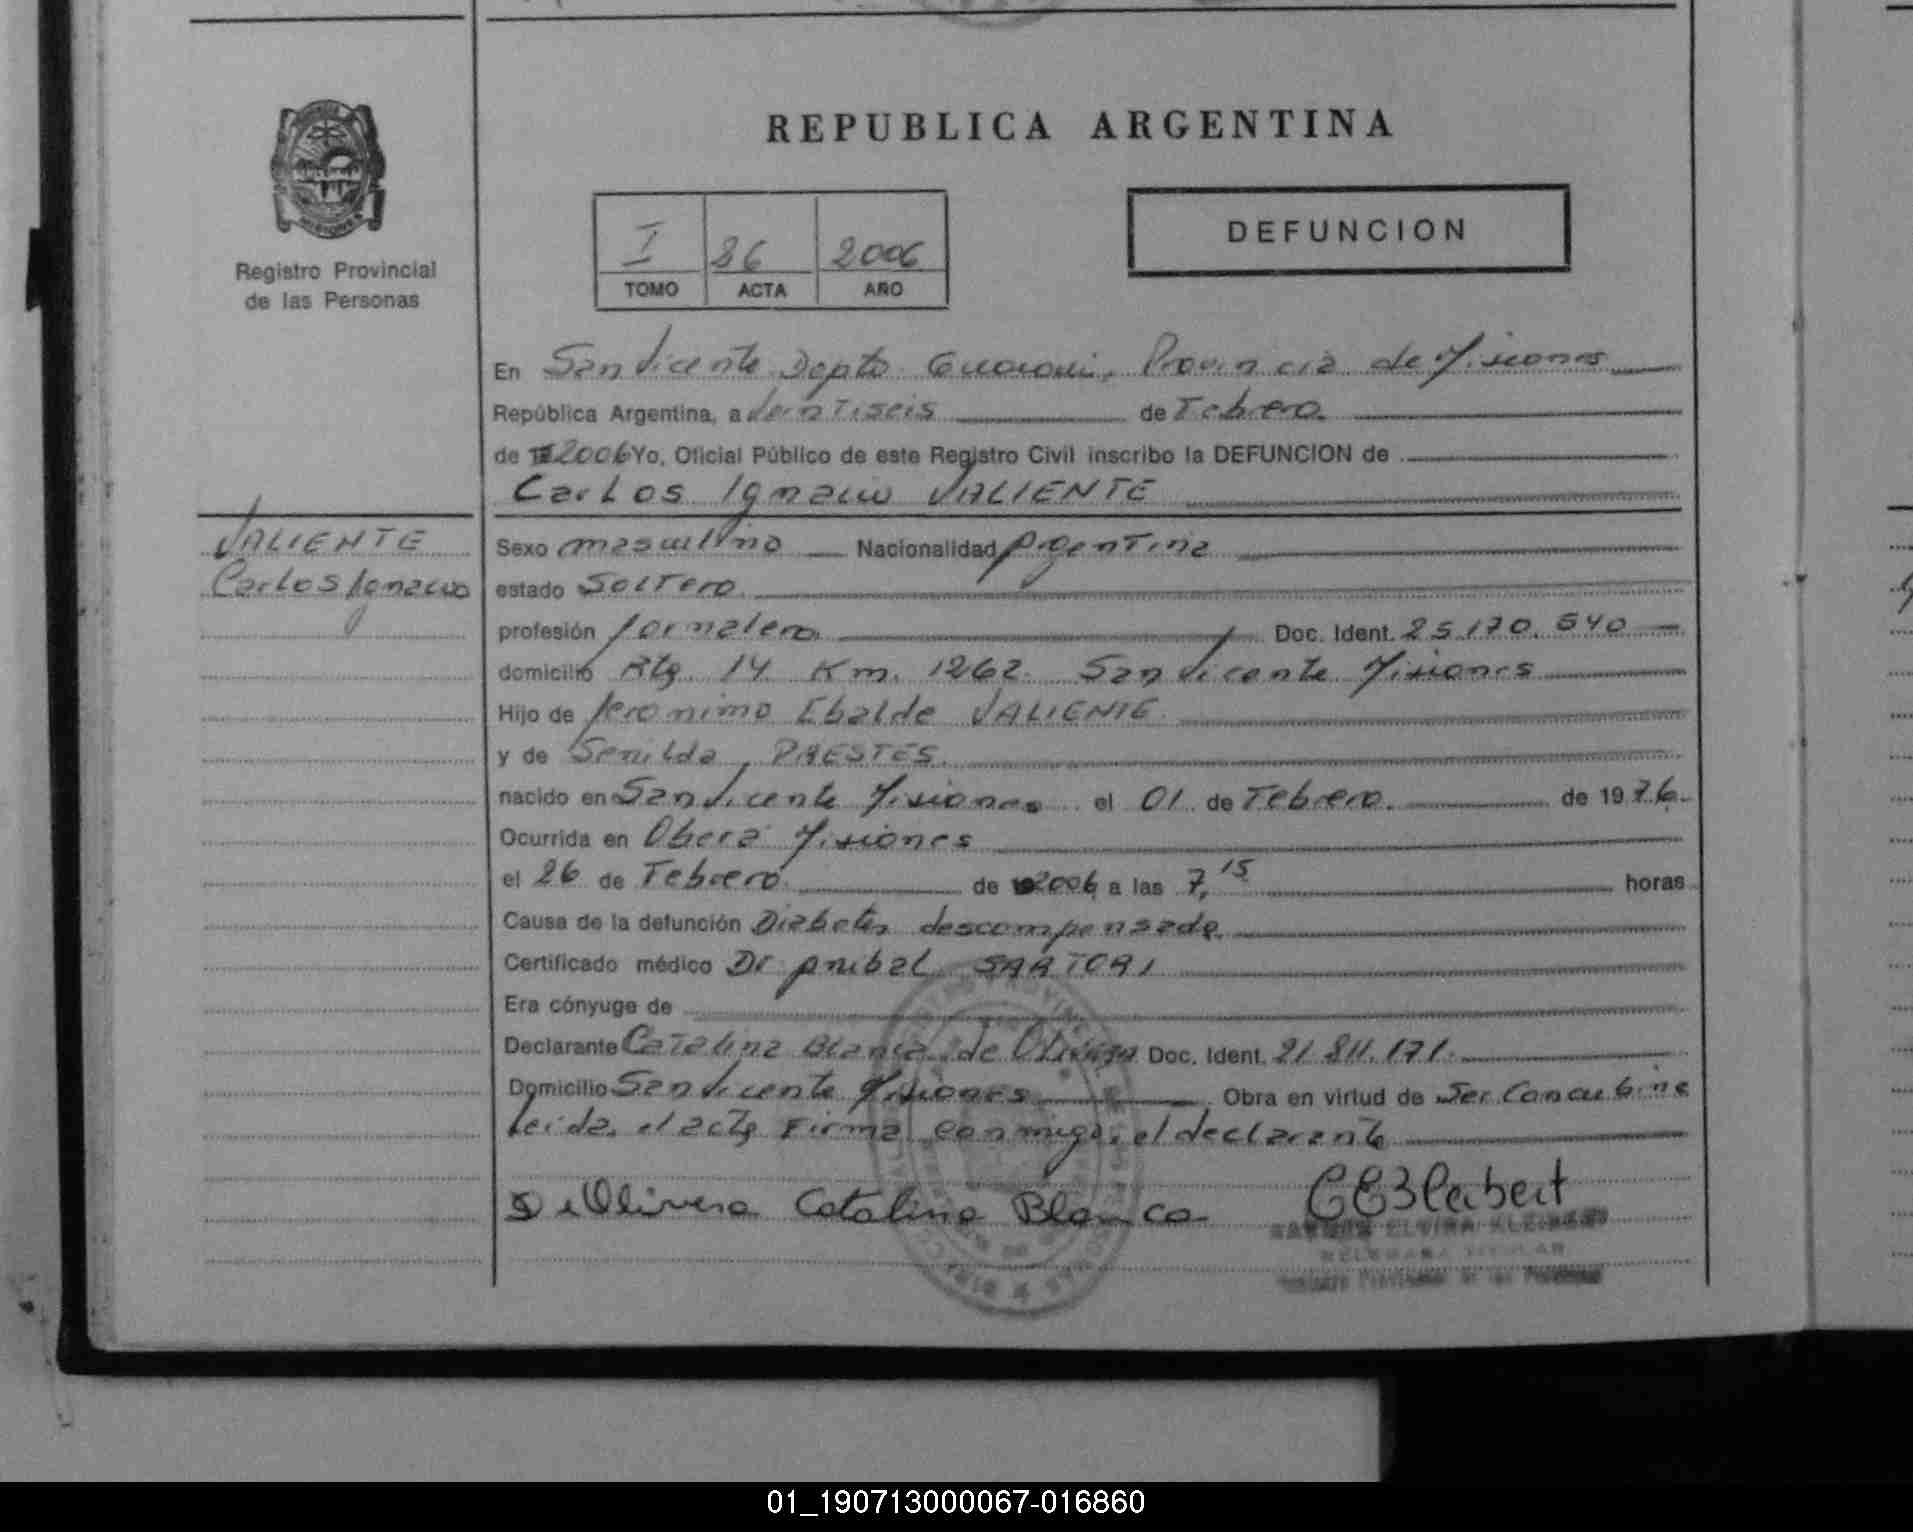 REPUBLICA ARGENTINA
Registro Provincial
de las Personas
I 26 2006
TOMO ACTA AÑO
DEFUNCION
En San Vicente Depto Guarani, Provincia de Misiones
República Argentina, a Veintiseis de Febrero
de 2006 Yo, Oficial Público de este Registro Civil inscribo la DEFUNCION de
Carlos Ignacio VALIENTE
VALIENTE
Carlos Ignacio
Sexo masculino Nacionalidad Argentina
estado Soltero
profesión Jornalero Doc. Ident. 25.170.540
domicilio Rta 14 Km. 1262. San Vicente Misiones
Hijo de Jeronimo Ebalde VALIENTE
y de Senilda PRESTES
nacido en San Vicente Misiones el 01 de Febrero de 1976
Ocurrida en Oberá Misiones
el 26 de Febrero de 2006 a las 7,15 horas
Causa de la defunción Diabetes descompensada
Certificado médico Dr Anibal SARTORI
Era cónyuge de
Declarante Catalina Blanca de Olivera Doc. Ident. 21.811.171
Domicilio San Vicente Misiones, Obra en virtud de Ser Concubina
Leida el acta Firma conmigo, el declarante
De Olivera Catalina Blanca
ELVIRA
01_190713000067-016860